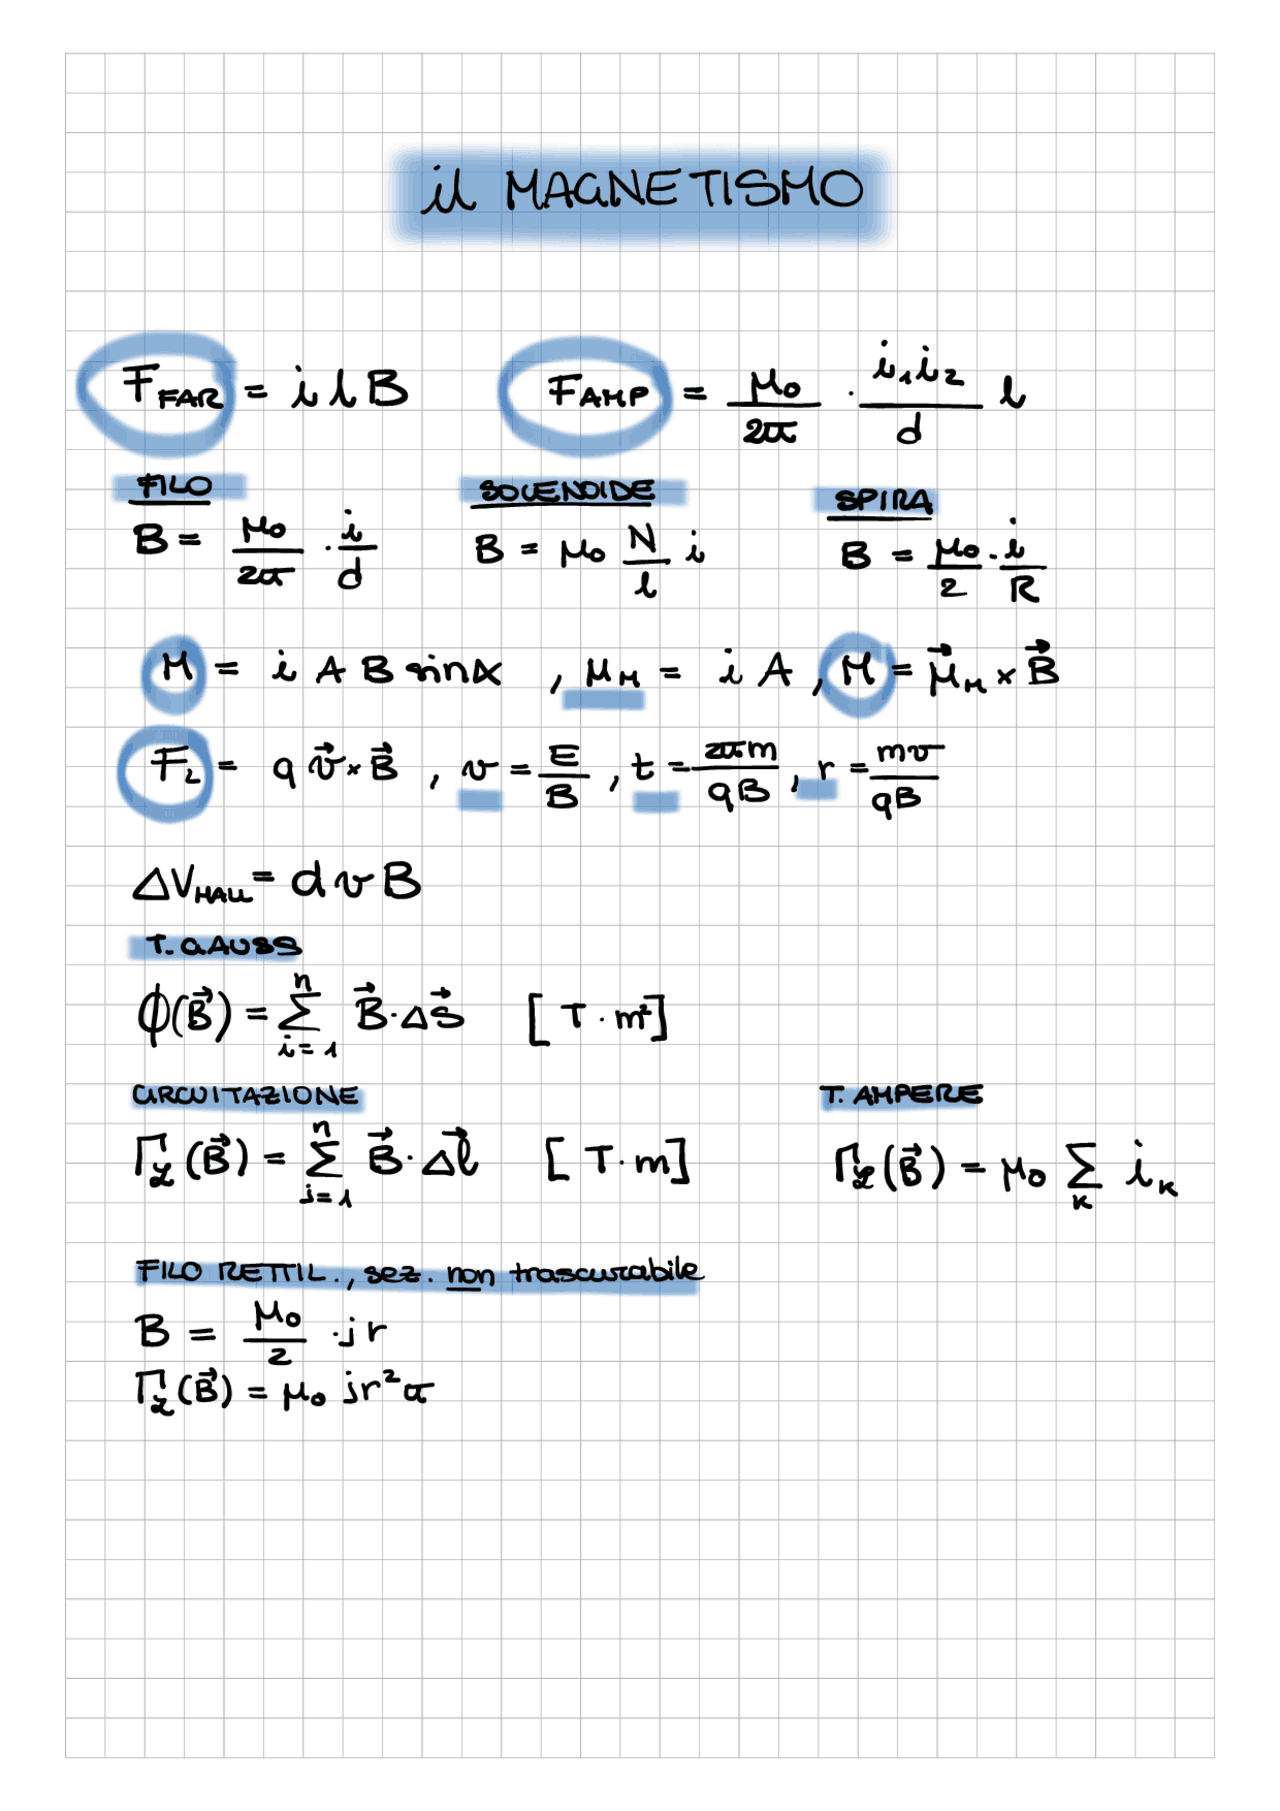 il MAGNETISMO
F_FAR = i l B    F_AMP = μ₀/2π · i₁i₂/d l
FILO    SOLENOIDE    SPIRA
B = μ₀/2π · i/d    B = μ₀ N/l i    B = μ₀/2 · i/R
M = i A B sinα , μ_M = i A , M = μ⃗_M × B⃗
F_L = q v⃗ × B⃗ , v = E/B , t = 2πm/qB , r = mv/qB
ΔV_HALL = d v B
T. GAUSS
ϕ(B⃗) = ∑_{i=1}^{n} B⃗ · ΔS⃗    [T · m²]
CIRCUITAZIONE    T. AMPERE
Γ_ℒ(B⃗) = ∑_{j=1}^{n} B⃗ · Δl⃗    [T · m]    Γ_ℒ(B⃗) = μ₀ ∑_k i_k
FILO RETTIL., sez. non trascurabile
B = μ₀/2 · j r
Γ_ℒ(B⃗) = μ₀ j r² π